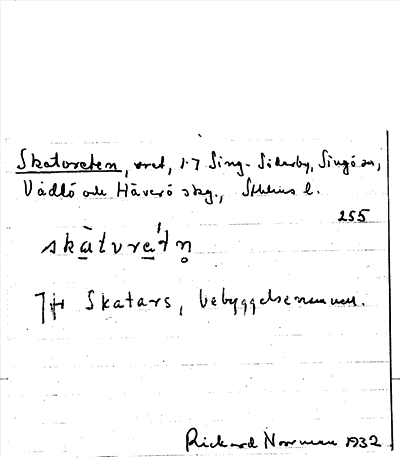 Skatvreten, vret, 1.7 Sing- Söderby, Singö sn,
Väddö och Häverö skg., Sthlms l.
255
skàtvrètn̥
Jfr Skatars, bebyggelsenamnen.
Rickard Norrman 1932.